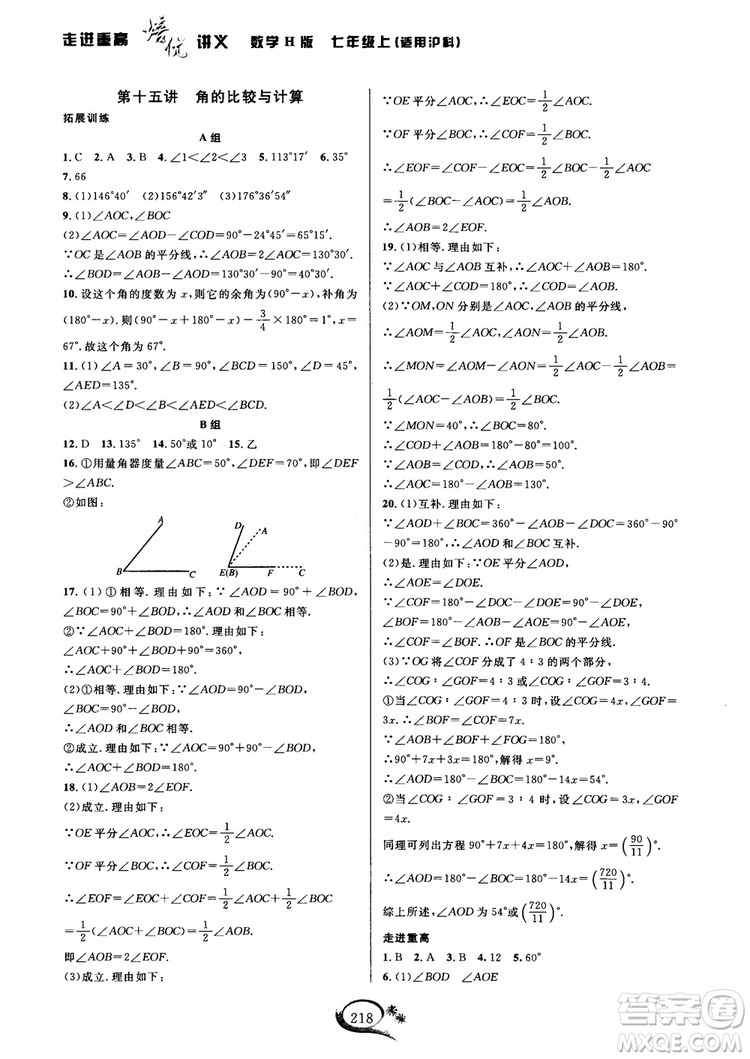 走进重高 培优 讲义 数学H版 七年级上(适用沪科)
第十五讲 角的比较与计算
拓展训练
A组
1. C 2. A 3. B 4. ∠1<∠2<∠3 5. 113°17′ 6. 35°
7. 66
8. (1)146°40′ (2)156°42′3″ (3)68°54′51″
9. (1)∠AOC,∠BOC
(2)∠AOC=∠DOC-∠AOD=∠COD=90°-24°30′=65°30′.
∵OC是∠AOB的平分线,∴∠AOB=2∠AOC=130°30′.
∴∠BOD=∠AOB-∠AOD=130°30′-24°30′=106°.
10. 设这个角的度数为x,则它的余角为(90°-x),补角为
(180°-x).则(90°-x)+(180°-x)-3/4×180°=1°,x=
67°.故这个角为67°.
11. (1)∠A=30°,∠B=90°,∠BCD=150°,∠D=45°,
∠AED=135°.
(2)∠A<∠D<∠B<∠AED<∠BCD.
B组
12. D 13. 135° 14. 50°或10° 15. 乙
16. ①用量角器度量∠ABC=50°,∠DEF=70°,即∠DEF
>∠ABC.
②如图:
A D A
B C E(B) F C
17. (1)①相等.理由如下:∵∠AOD=90°+∠BOD,
∠BOC=90°+∠BOD,∴∠AOD=∠BOC.
②∵∠AOC+90°+∠BOD+90°=360°,
∴∠AOC+∠BOD=180°.
(2)①相等.理由如下:∵∠AOD=90°-∠BOD,
∠BOC=90°-∠BOD,∴∠AOD=∠BOC.
②成立.理由如下:∵∠AOC=90°+90°-∠BOD,
∴∠AOC+∠BOD=180°.
18. (1)∠AOB=2∠EOF.
(2)成立.理由如下:
∵OE平分∠AOC,∴∠EOC=1/2∠AOC.
∵OF平分∠BOC,∴∠COF=1/2∠BOC.
∴∠EOF=∠EOC+∠COF=1/2∠AOC+1/2∠BOC
=1/2(∠AOC+∠BOC)=1/2∠AOB.
即∠AOB=2∠EOF.
(3)成立.理由如下:
∵OE平分∠AOC,∴∠EOC=1/2∠AOC.
∵OF平分∠BOC,∴∠COF=1/2∠BOC.
∴∠EOF=∠COF-∠EOC=1/2∠BOC-1/2∠AOC
=1/2(∠BOC-∠AOC)=1/2∠AOB.
∴∠AOB=2∠EOF.
19. (1)相等.理由如下:
∵∠AOC与∠AOB互补,∴∠AOC+∠AOB=180°.
∵∠AOC+∠DOB=180°,∴∠AOB=∠DOB.
(2)∵OM,ON分别是∠AOC,∠AOB的平分线,
∴∠AOM=1/2∠AOC,∠AON=1/2∠AOB.
∴∠MON=∠AOM-∠AON=1/2∠AOC-1/2∠AOB=
1/2(∠AOC-∠AOB)=1/2∠BOC.
∵∠MON=40°,∴∠BOC=80°.
∴∠COD+∠AOB=∠BOC=80°.
∵∠COD+∠AOD=90°+90°=180°,
∴∠AOB+∠AOD=180°-80°=100°.
∵∠AOB=∠DOB,∴∠AOB=50°.
∴∠AOC=180°-∠AOB=130°.
20. (1)互补.理由如下:
∵∠AOD+∠BOC=360°-∠AOB-∠DOC=360°-
90°-90°=180°,∴∠AOD与∠BOC互补.
(2)是.理由如下:∵OE平分∠AOD,
∴∠AOE=∠DOE.
∵∠COF=180°-∠DOC-∠DOE=90°-∠DOE,
∠BOF=180°-∠AOB-∠AOE=90°-∠AOE,
∴∠COF=∠BOF.∴OF是∠BOC的平分线.
(3)∵OG将∠COF分成4∶3的两个部分,
∴∠COG∶∠GOF=4∶3或∠COG∶∠GOF=3∶4.
①当∠COG∶∠GOF=4∶3时,设∠COG=4x,∠GOF=
3x.∴∠BOF=∠COF=7x.
∵∠AOB+∠BOF+∠FOG=180°,
∴90°+7x+3x=180°.解得x=9°.
∴∠AOD=180°-∠BOC=180°-14x=54°.
②当∠COG∶∠GOF=3∶4时,设∠COG=3x,∠GOF=
4x.
同理可列出方程90°+7x+4x=180°,解得x=(90/11)°.
∴∠AOD=180°-∠BOC=180°-14x=(720/11)°.
综上所述,∠AOD为54°或(720/11)°.
走进重高
1. B 2. A 3. B 4. 12 5. 60°
6. (1)∠BOD ∠AOE
218
答案卷
MXQE.COM